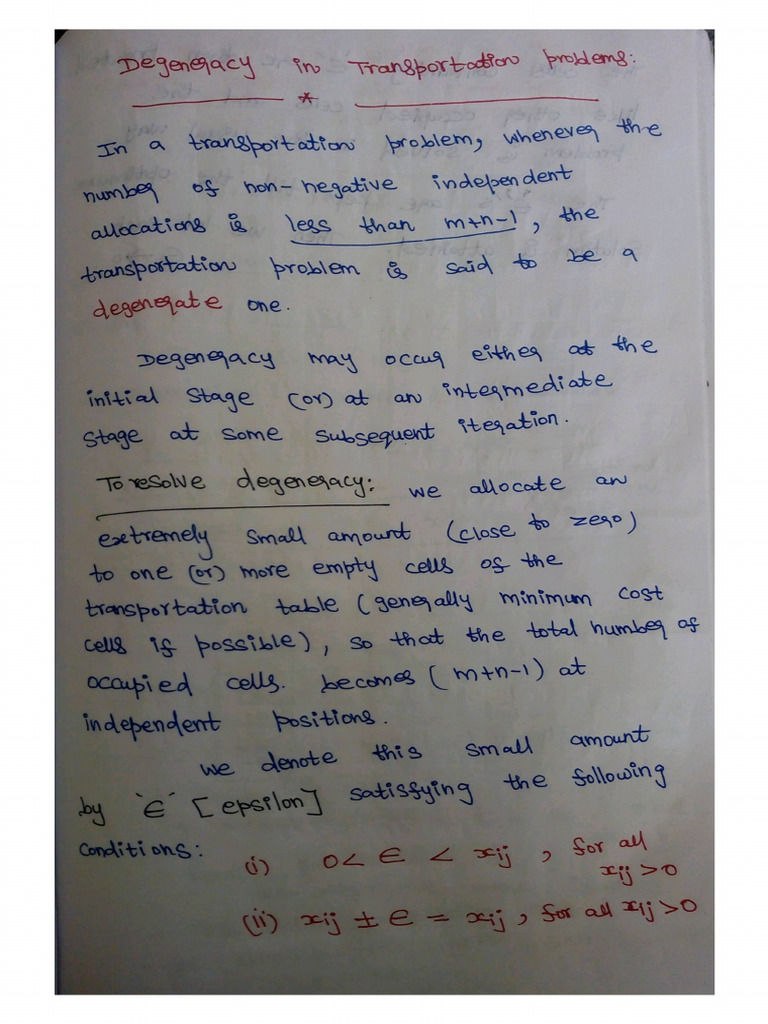 Degeneracy in Transportation problems:
*
In a transportation problem, whenever the
number of non-negative independent
allocations is less than m+n-1, the
transportation problem is said to be a
degenerate one.
Degeneracy may occur either at the
initial stage (or) at an intermediate
stage at some subsequent iteration.
To resolve degeneracy: we allocate an
extremely small amount (close to zero)
to one (or) more empty cells of the
transportation table (generally minimum cost
cells if possible), so that the total number of
occupied cells. becomes (m+n-1) at
independent positions.
we denote this small amount
by 'ϵ' [epsilon] satisfying the following
conditions:
(i) 0 < ϵ < xij , for all
xij > 0
(ii) xij ± ϵ = xij , for all xij > 0